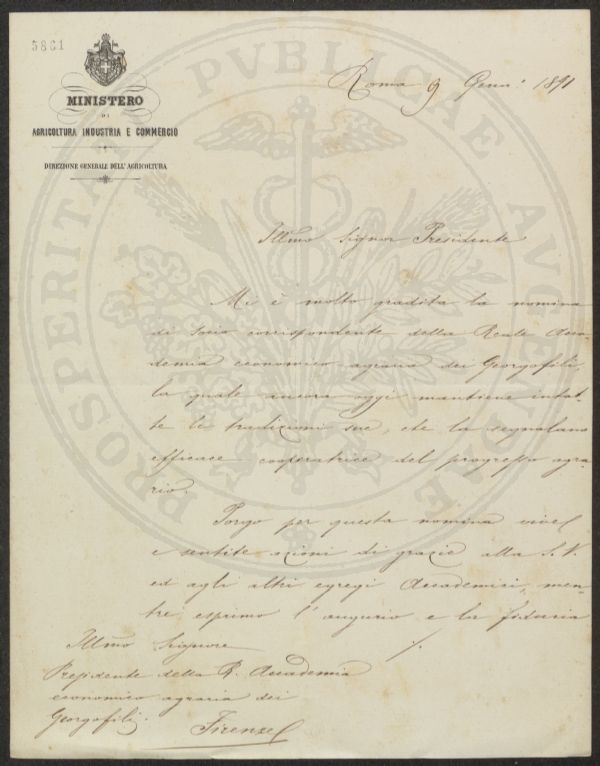 5861
MINISTERO
DI
AGRICOLTURA INDUSTRIA E COMMERCIO
DIREZIONE GENERALE DELL'AGRICOLTURA
Roma 9 Genn: 1891
PROSPERITATI PVBLICAE AVGENDAE
Illmo Signor Presidente
Mi è molto gradita la nomina
di socio corrispondente della Reale Acca-
demia economico agraria dei Georgofili,
la quale ancora oggi mantiene intat-
te le tradizioni sue, che la segnalano
efficace cooperatrice del progresso agra-
rio.
Porgo per questa nomina vive
e sentite azioni di grazie alla S. V.
ed agli altri egregi Accademici, men-
tre esprimo l'augurio e la fiducia
./.
Illmo Signore
Presidente della R. Accademia
economico agraria dei
Georgofili.
Firenze